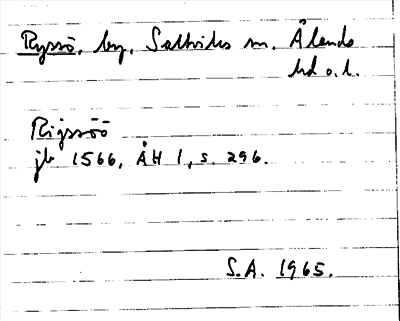 Ryssö, by, Saltviks sn, Ålands
hd o. l.
Rijssöö
jb 1566, ÅH 1, s. 296.
S.A. 1965.